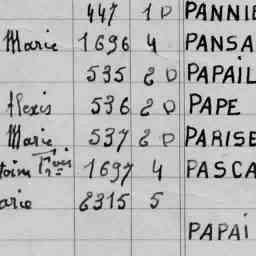 447 1 D PANNIE
Marie 1696 4 PANSA
535 2 D PAPAIL
Alexis 536 2 D PAPE
Marie 537 2 D PARISE
toim Fois 1697 4 PASCA
arie 2315 5
PAPAi